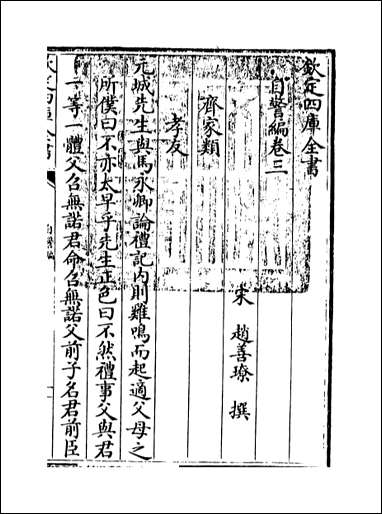 欽定四庫全書
自警編卷三
宋 趙善璙 撰
齊家類
孝友
元城先生與馬永卿論禮記內則雞鳴而起適父母之
所僕曰不亦太早乎先生正色曰不然禮事父與君
一等一體父召無諾君命召無諾父前子名君前臣